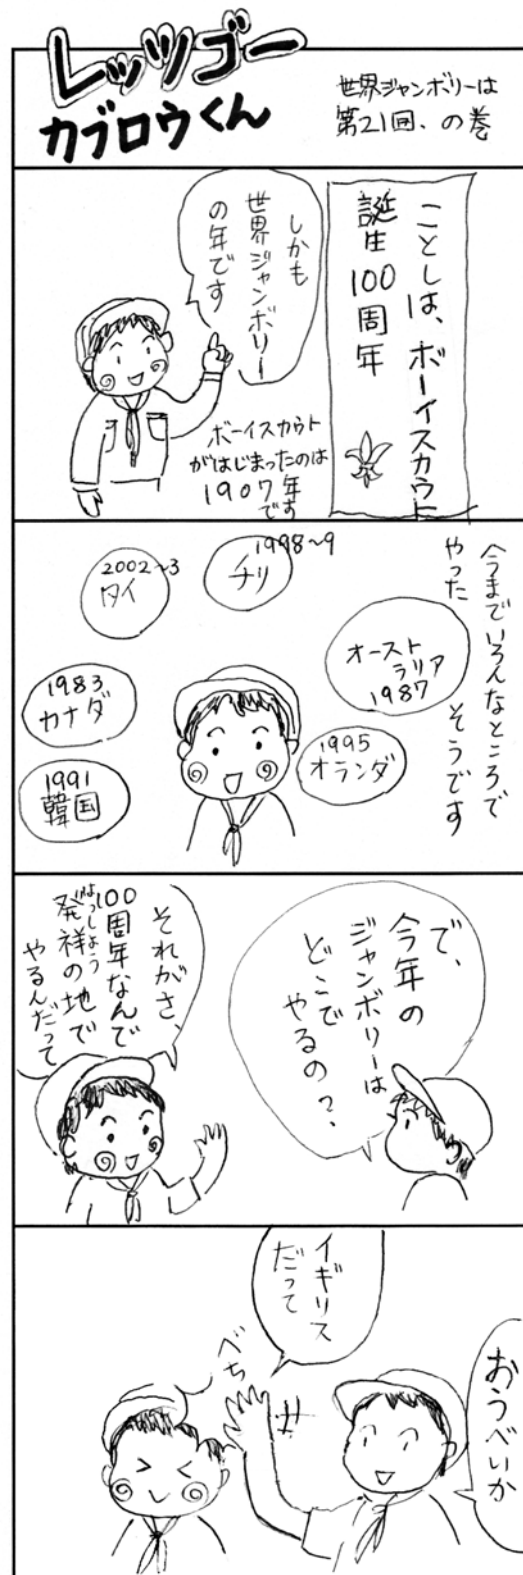 レッツゴー
カブロウくん
世界ジャンボリーは
第21回、の巻
ことしは、ボーイスカウト
誕生100周年
しかも
世界ジャンボリー
の年です
ボーイスカウト
がはじまったのは
1907年
です
今までいろんなところで
やった
そうです
1998~9
チリ
2002~3
タイ
オースト
ラリア
1987
1983
カナダ
1995
オランダ
1991
韓国
で、
今年の
ジャンボリーは
どこで
やるの?、
それがさ、
100周年なんで
はっしょう
発祥の地で
やるんだって
イギリス
だって
おうべいか
べち